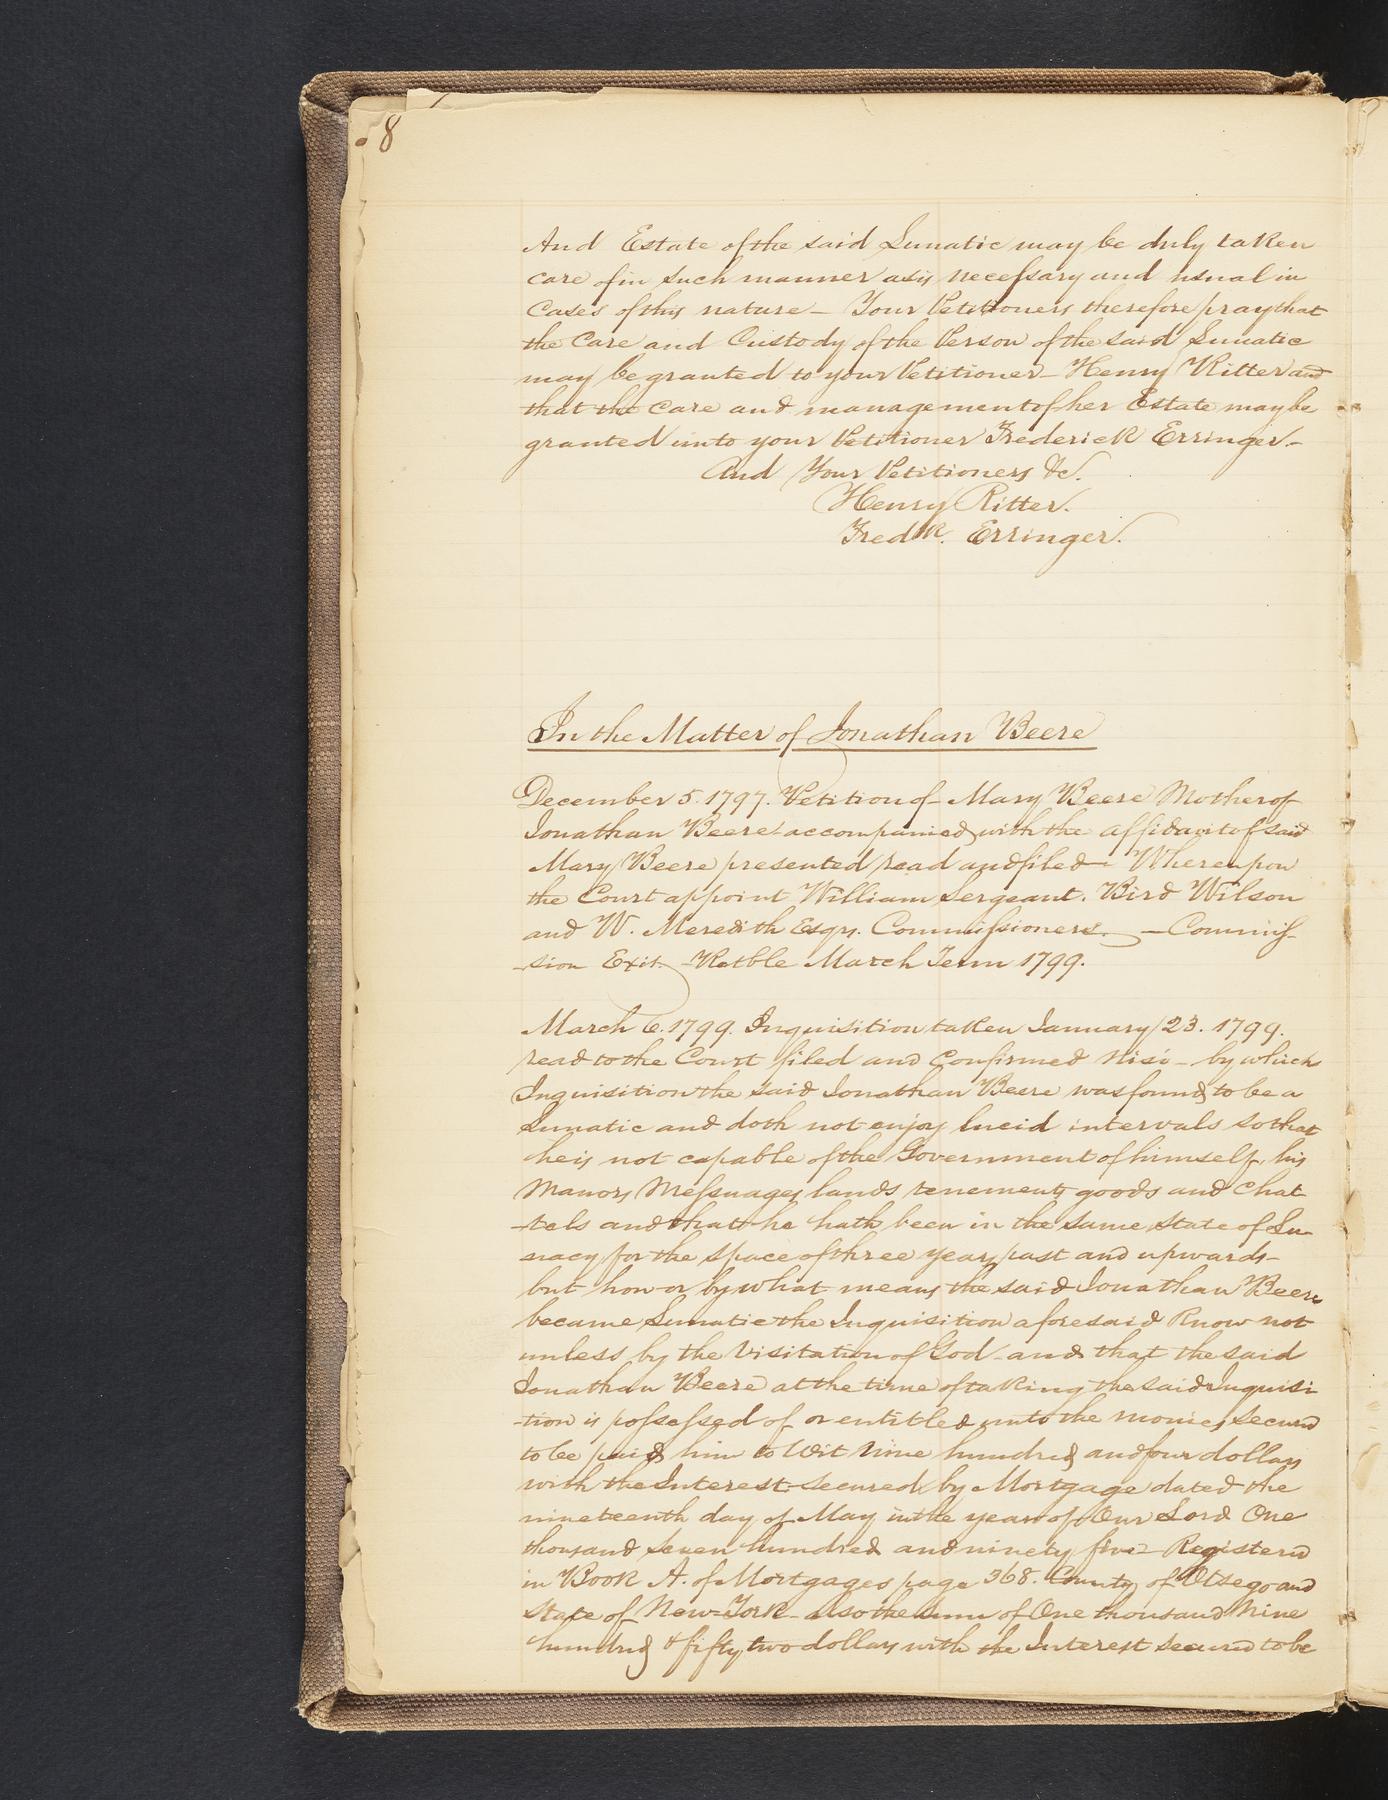 8
And Estate of the said Lunatic may be duly taken
care of in such manner as is necessary and usual in
Cases of this nature – Your Petitioners therefore pray that
the Care and Custody of the Person of the said Lunatic
may be granted to your Petitioner – Henry Ritter and
that the Care and management of her Estate may be
granted unto your Petitioner Frederick Erringer. –
And Your Petitioners &c.
Henry Ritter.
Fredk. Erringer.
In the Matter of Jonathan Beere
December 5. 1797. Petition of – Mary Beere Mother of
Jonathan Beere accompanied with the affidavit of said
Mary Beere presented read and filed – Whereupon
the Court appoint William Sergeant. Bird Wilson
and W. Meredith Esqrs. Commissioners. – Commis-
-sion Exit. – Retble March Term 1799.
March 6. 1799. Inquisition taken January 23. 1799.
read to the Court filed and Confirmed Nisi – by which
Inquisition the said Jonathan Beere was found to be a
Lunatic and doth not enjoy lucid intervals so that
he is not capable of the Government of himself, his
Manors Messuages lands tenements goods and Chat
-tels and that he hath been in the same state of Lu-
nacy for the space of three years past and upwards –
but how or by what means the said Jonathan Beere
became Lunatic the Inquisition aforesaid Know not
unless by the Visitation of God – and that the said
Jonathan Beere at the time of taking the said Inquisi
-tion is possessed of or entitled unto the monies secured
to be paid him to Wit Nine hundred and four dollars
with the Interest secured by Mortgage dated the
nineteenth day of May in the year of Our Lord One
thousand seven hundred and ninety five – Registered
in Book A. of Mortgages page 368. County of Otsego and
State of New-York – also the sum of One thousand Nine
hundred & fifty two dollars with the Interest secured to be